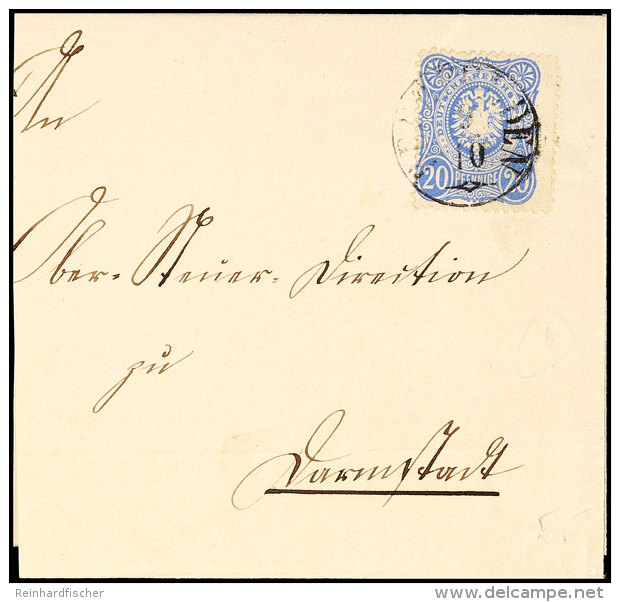 DEUTSCHE REICHS-POST
DEN
10
20 PFENNIGE 20
An
Ober-Steuer-Direction
zu
Darmstadt
Reinhardfischer
delcampe.net